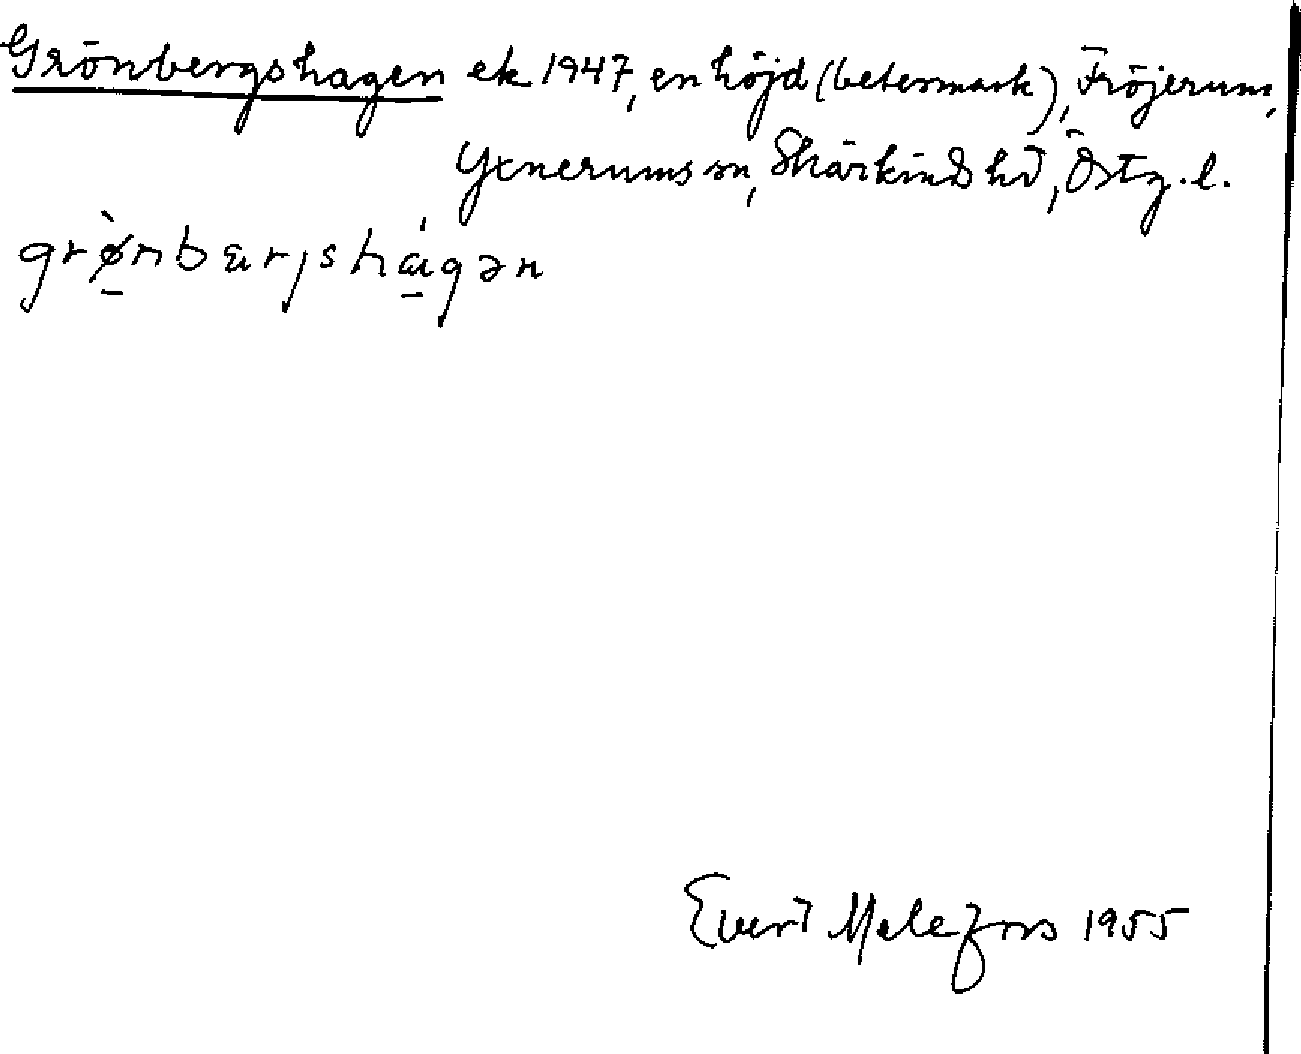 Grönbergshagen ek 1947, en höjd (betesmark), Fröjerum,
Yxnerums sn, Skärkinds hd, Östg. l.
grø̀nbærjshágən
Evert Melefors 1955